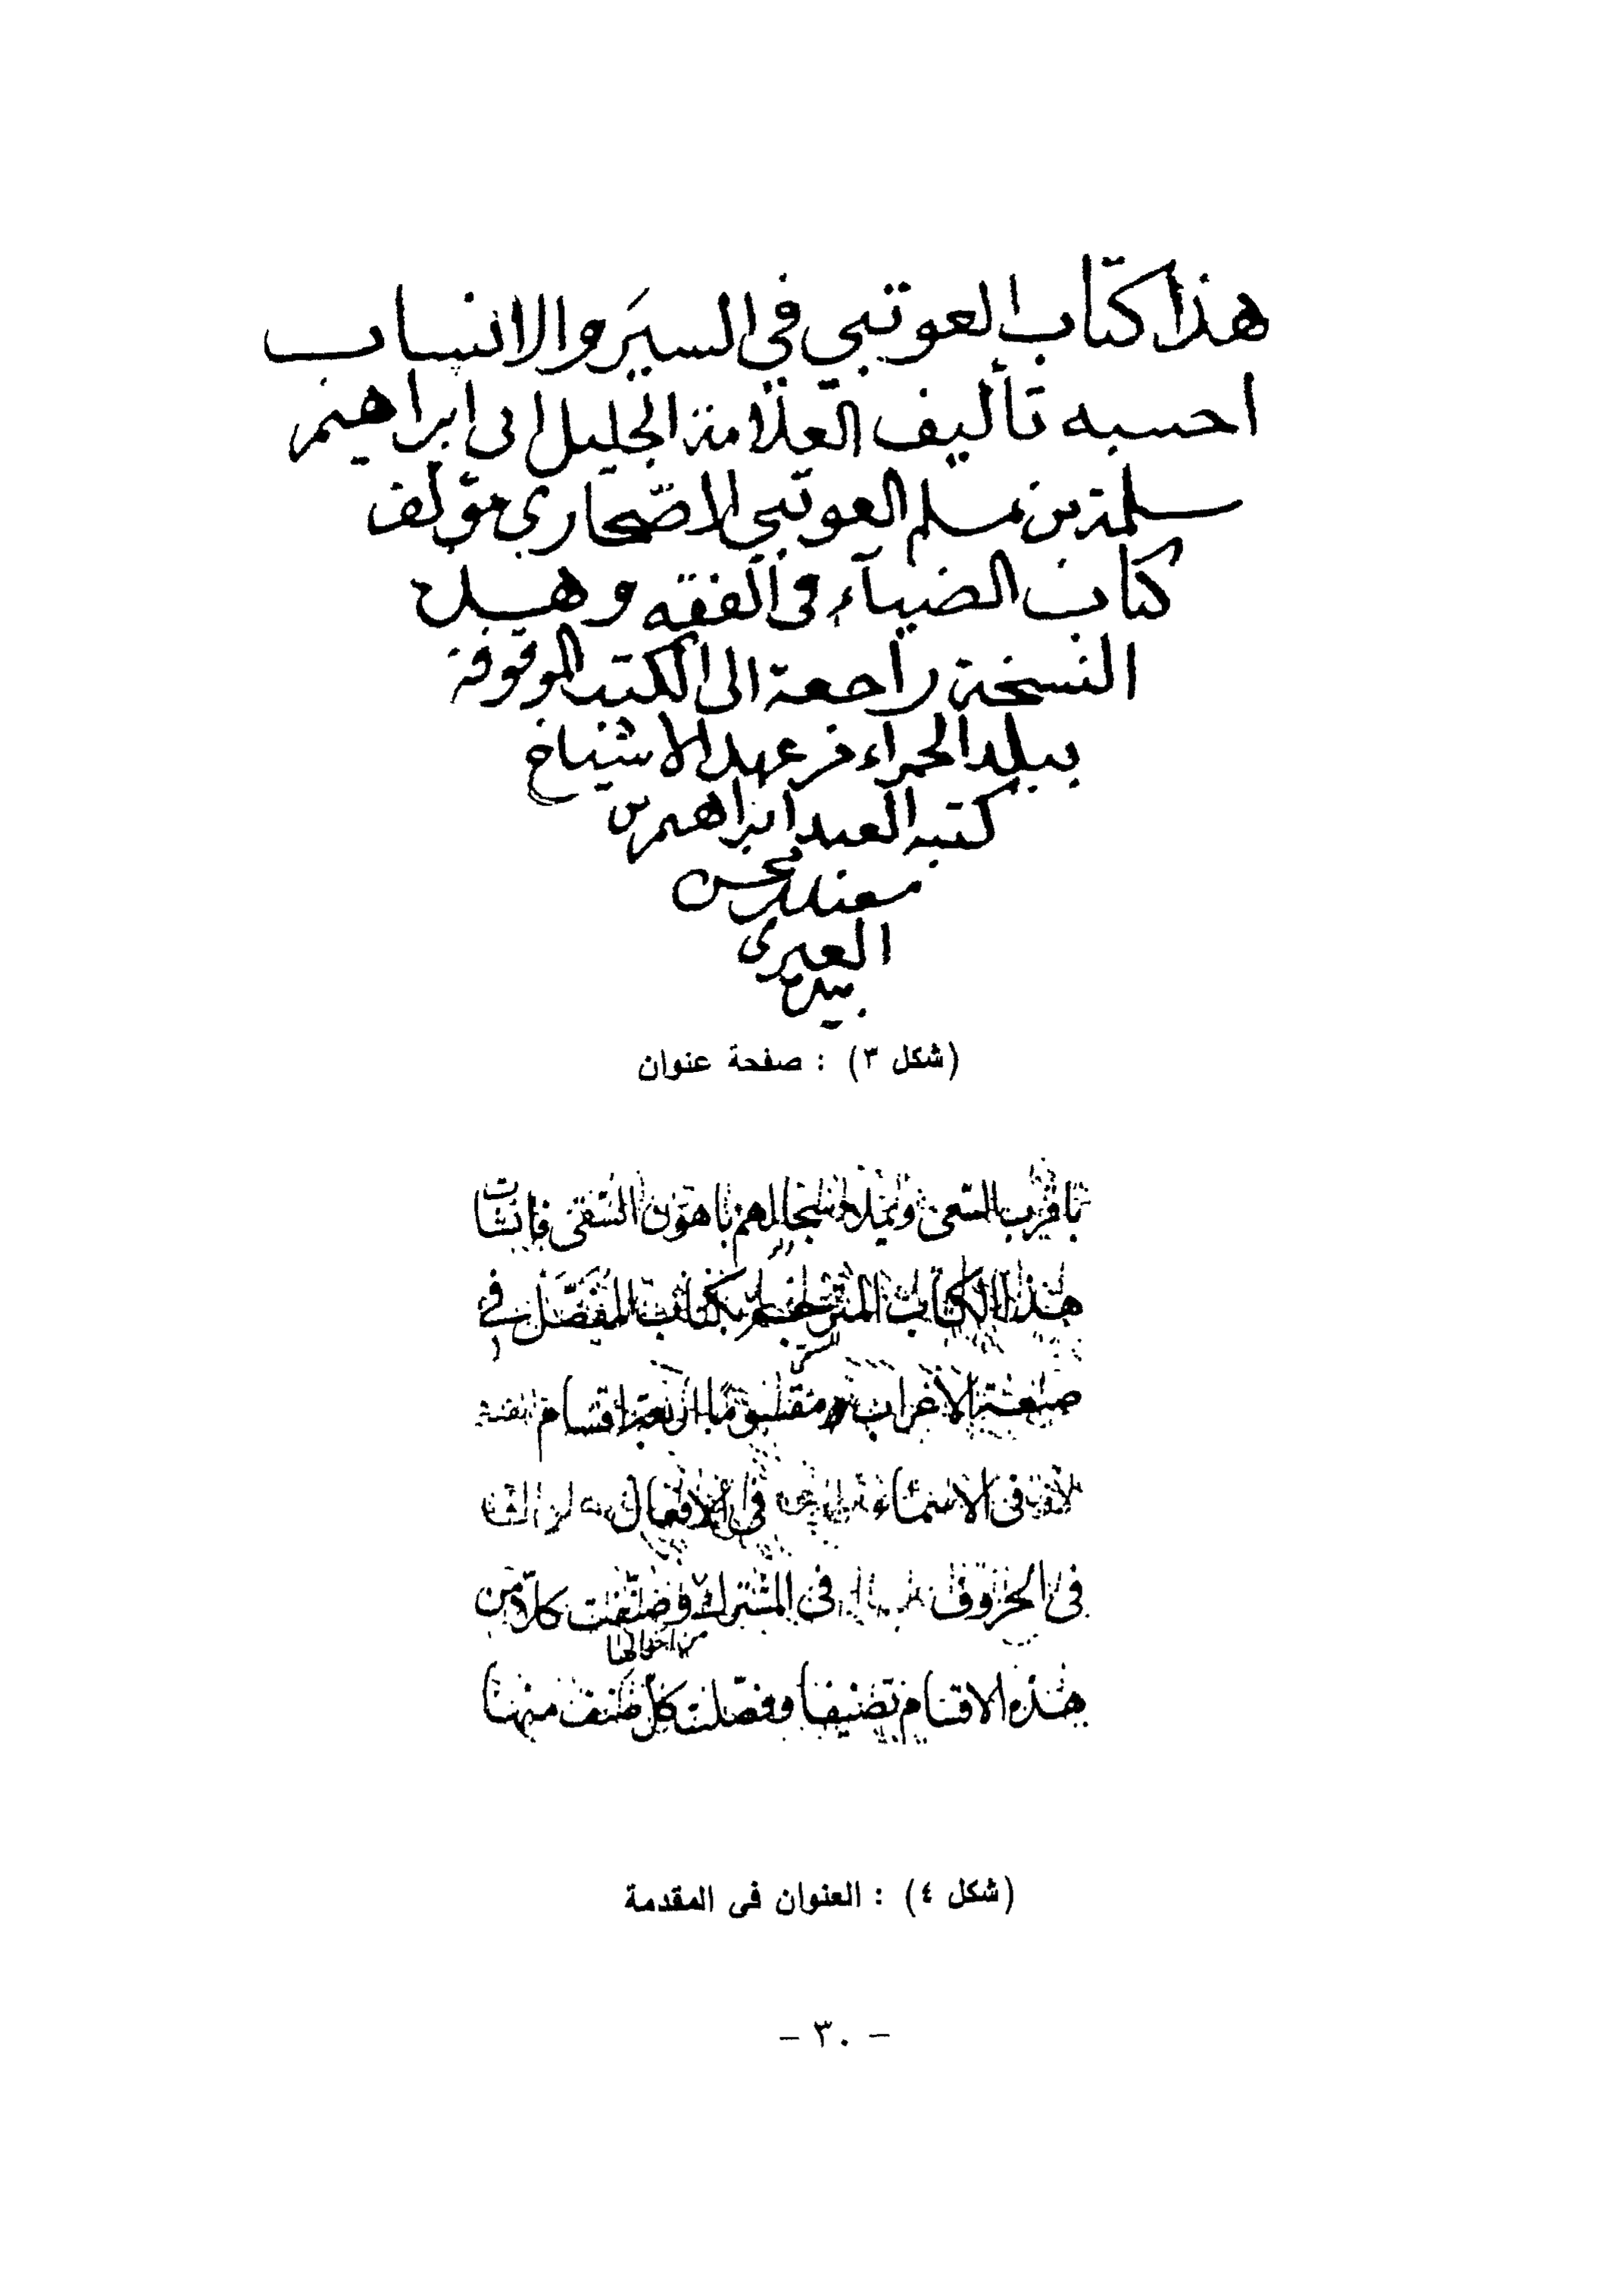 هذا كتاب العوتبي في السيَر والانساب
احسبه تأليف العلامة الجليل ابى ابراهيم
سلمة بن مسلم العوتبي الاصّحاري مؤلف
كتاب الضيآء فى الفقه وهذه
النسخة راجعة الى الكتب الموقوفة
ببلد الحمراء من عهد الاشياخ
كتبه العبد ابراهيم بن
سعيد بن محسن
العبرى
بيده
(شكل ٣) : صفحة عنوان
باقرب السَّعى باهون السَّقى فانشأت
هذا الكتاب المترجم بكتاب المفَصَّل في
صنعة الاعراب مقسومًا اربعة اقسام
فى الاسماء فى الافعال
فى الحروف فى المشترك وصنّفت كلاًّ من
هذه الاقسام تصنيفا وفصّلت كلّ صنف منها
(شكل ٤) : العنوان فى المقدمة
– ٣٠ –